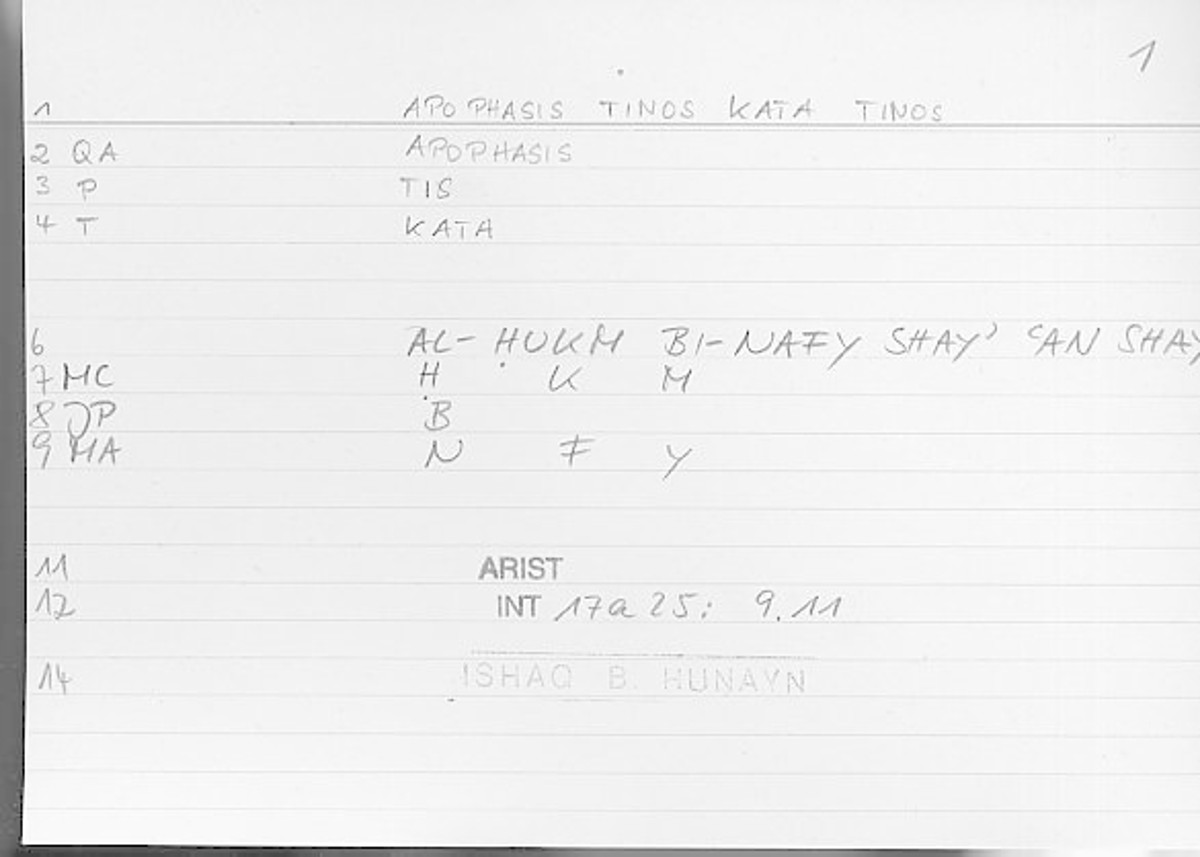 1
1 APOPHASIS TINOS KATA TINOS
2 QA APOPHASIS
3 P TIS
4 T KATA
6 AL-ḤUKM BI-NAFY SHAYʾ ʿAN SHAY
7 MC Ḥ K M
8 JP B
9 MA N F Y
11 ARIST
12 INT 17a25; 9.11
14 ISHAQ B. HUNAYN